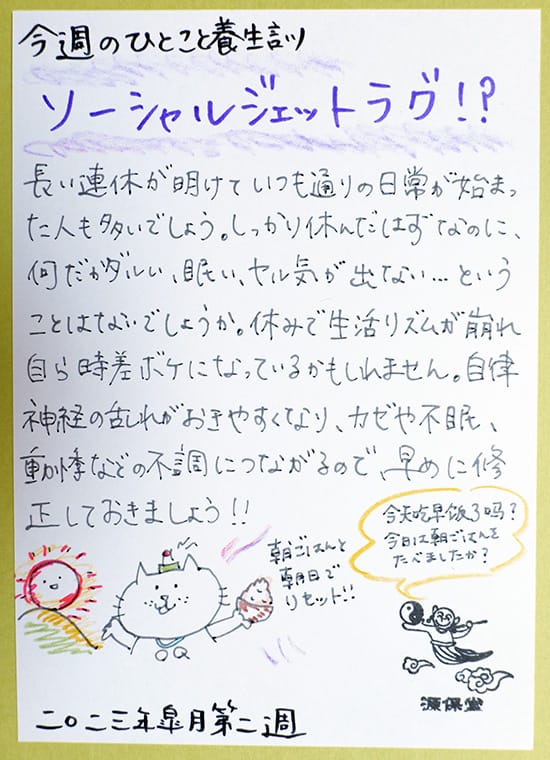 今週のひとこと養生訓
ソーシャルジェットラグ!?
長い連休が明けていつも通りの日常が始まっ
た人も多いでしょう。しっかり休んだはずなのに、
何だかダルい、眠い、ヤル気が出ない…という
ことはないでしょうか。休みで生活リズムが崩れ
自ら時差ボケになっているかもしれません。自律
神経の乱れがおきやすくなり、カゼや不眠、
動悸などの不調につながるので、早めに修
正しておきましょう!!
朝ごはんと
朝日で
リセット!!
今天吃早饭了吗?
今日は朝ごはんを
たべましたか?
源保堂
二〇二三年皐月第二週